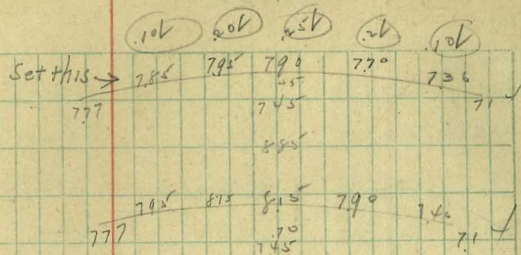 .10↓ .20↓ .25↓ .2↓ .10↓
Set this → 7.85 7.95 7.90 7.70 7.36
777 7.45 7.1
8.85
7.95 8.15 8.15 7.90 7.46
777 .70 7.1
7.45